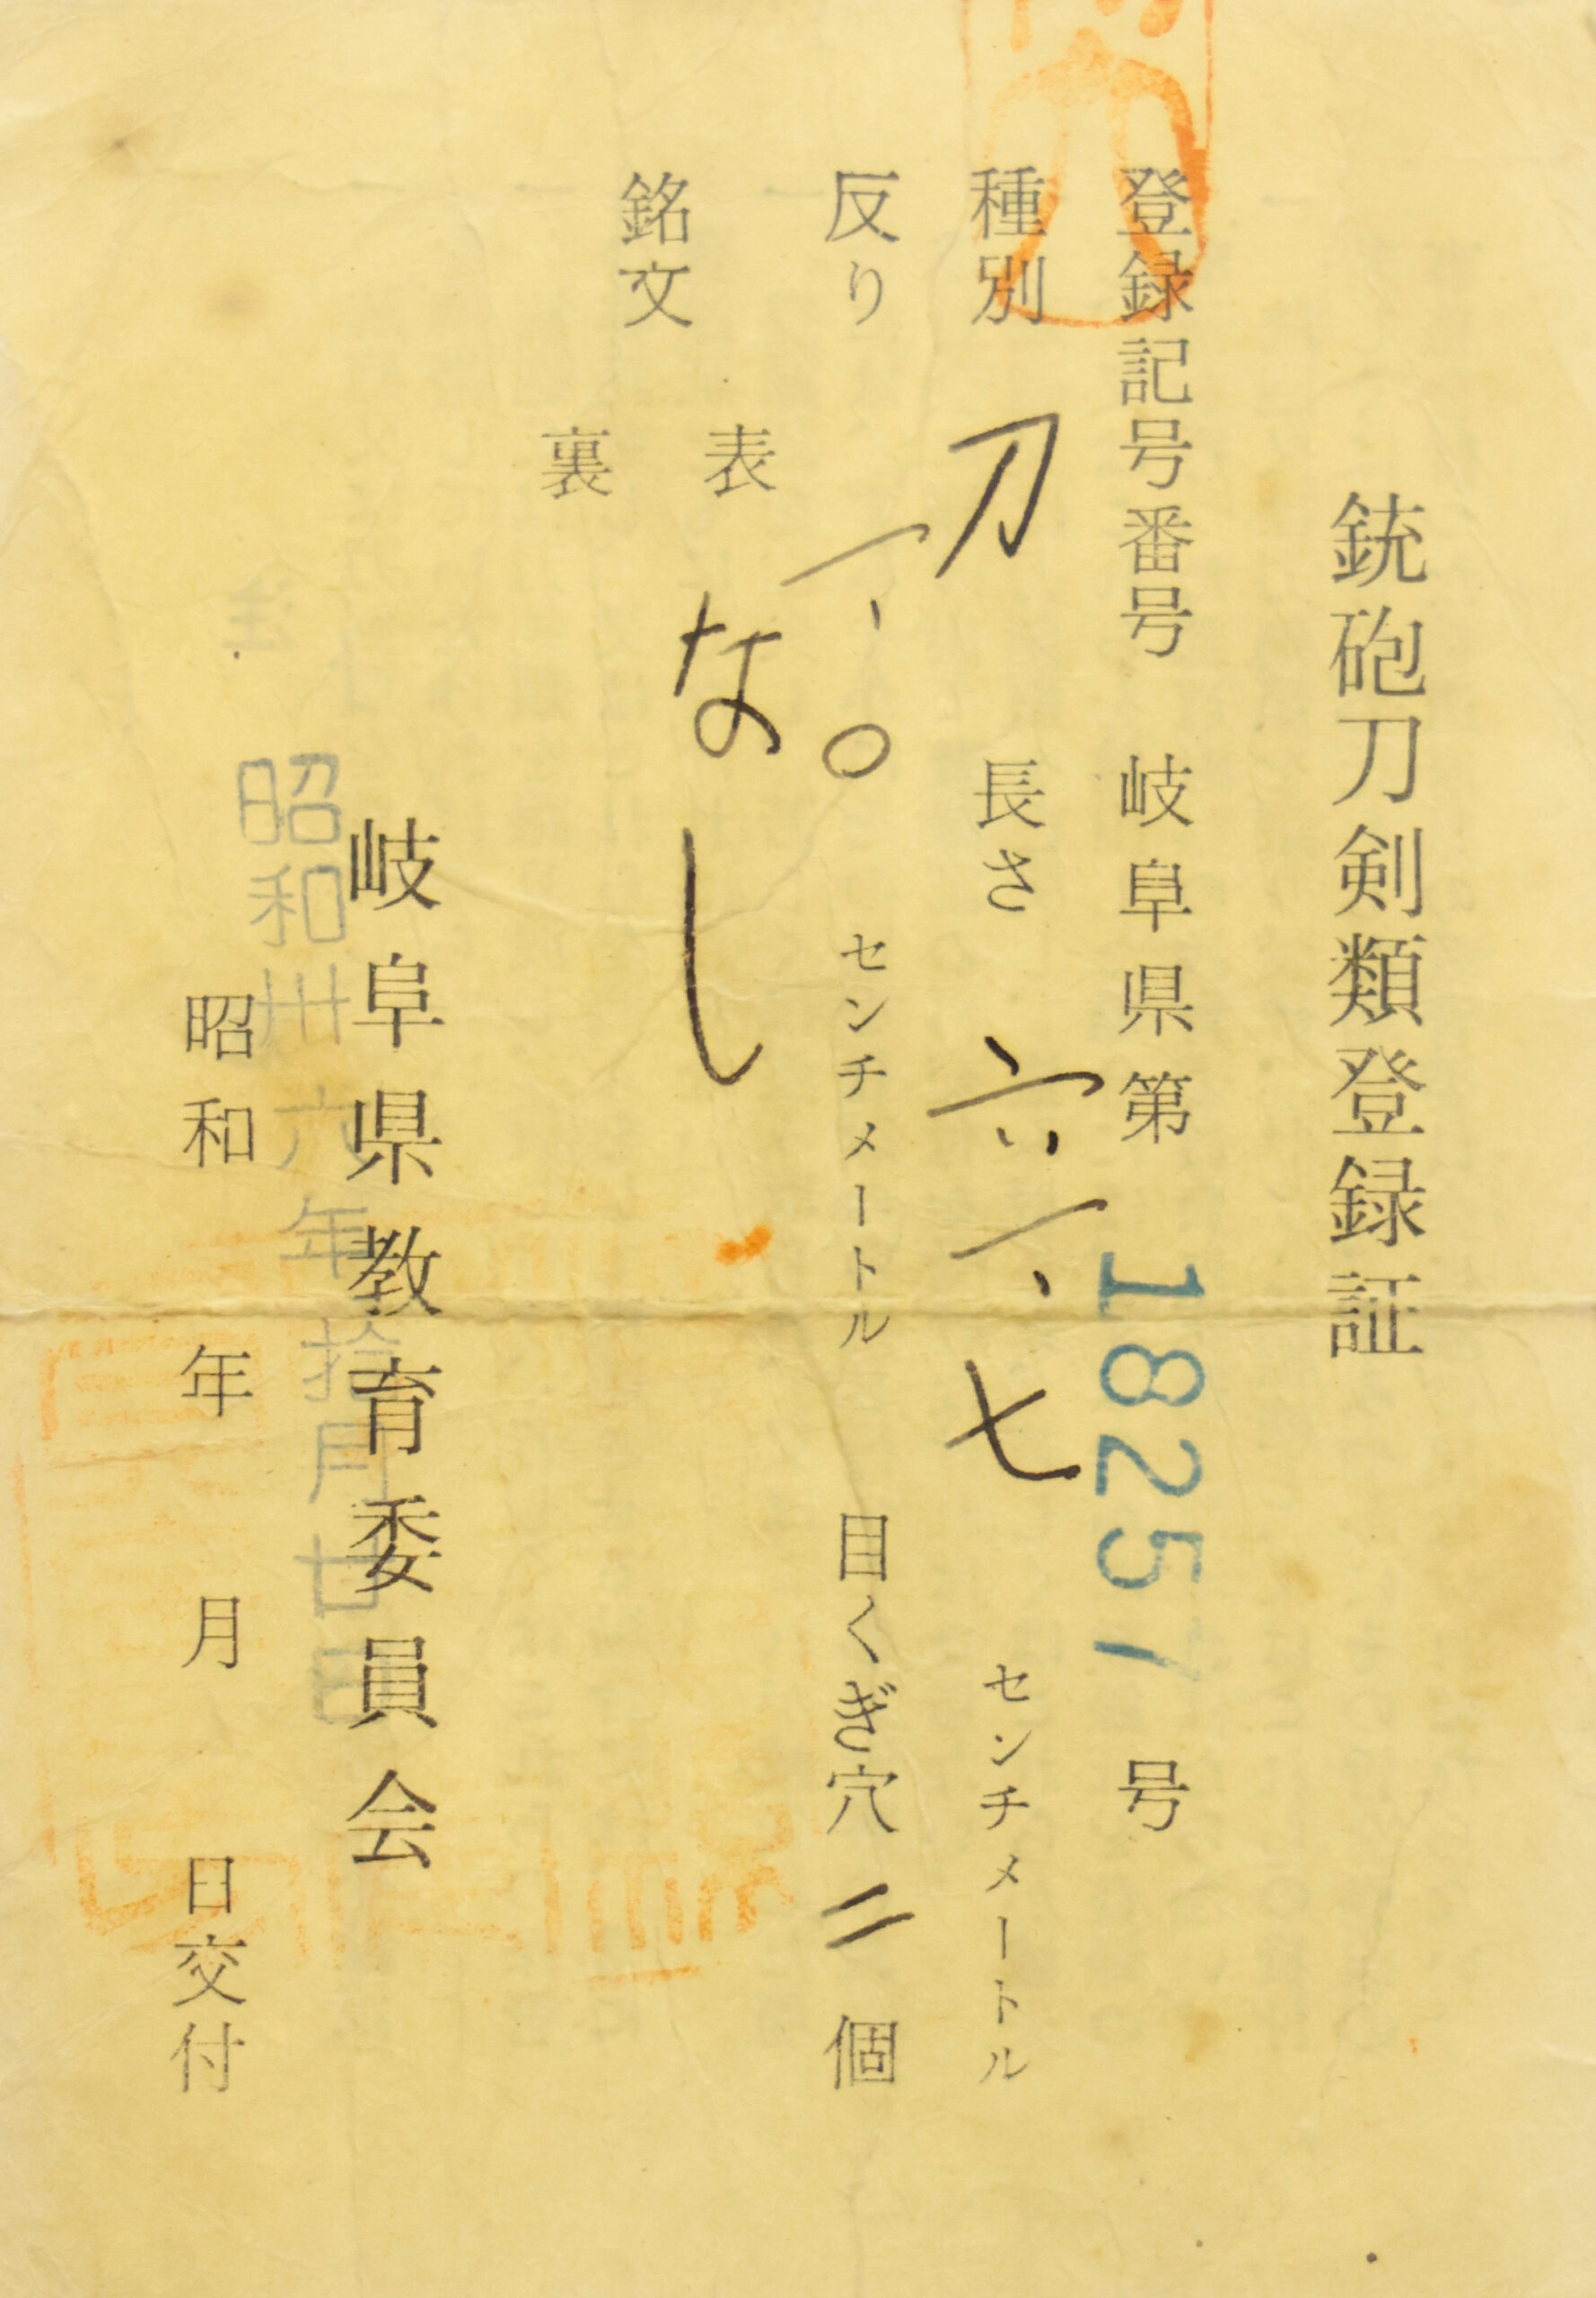 銃砲刀剣類登録証
登録記号番号 岐阜県第 18257 号
種別 刀 長さ 六一、七 センチメートル
反り 一、〇 センチメートル 目くぎ穴 二 個
銘文 表 なし
裏
岐阜県教育委員会
昭和卅六年拾月廿日
昭和 年 月 日交付